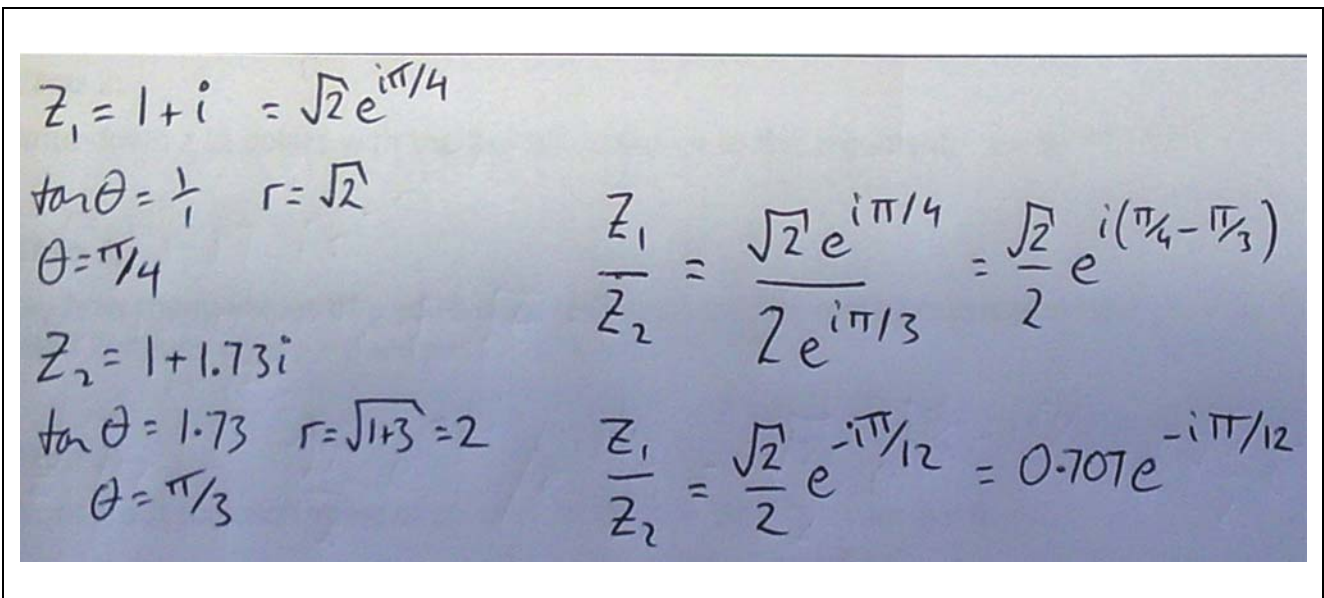 Z₁ = 1 + i = √2 e^{iπ/4}
tan θ = 1/1 r = √2
θ = π/4
Z₂ = 1 + 1.73i
tan θ = 1.73 r = √(1+3) = 2
θ = π/3
Z₁/Z₂ = (√2 e^{iπ/4})/(2 e^{iπ/3}) = (√2/2) e^{i(π/4 - π/3)}
Z₁/Z₂ = (√2/2) e^{-iπ/12} = 0.707 e^{-iπ/12}